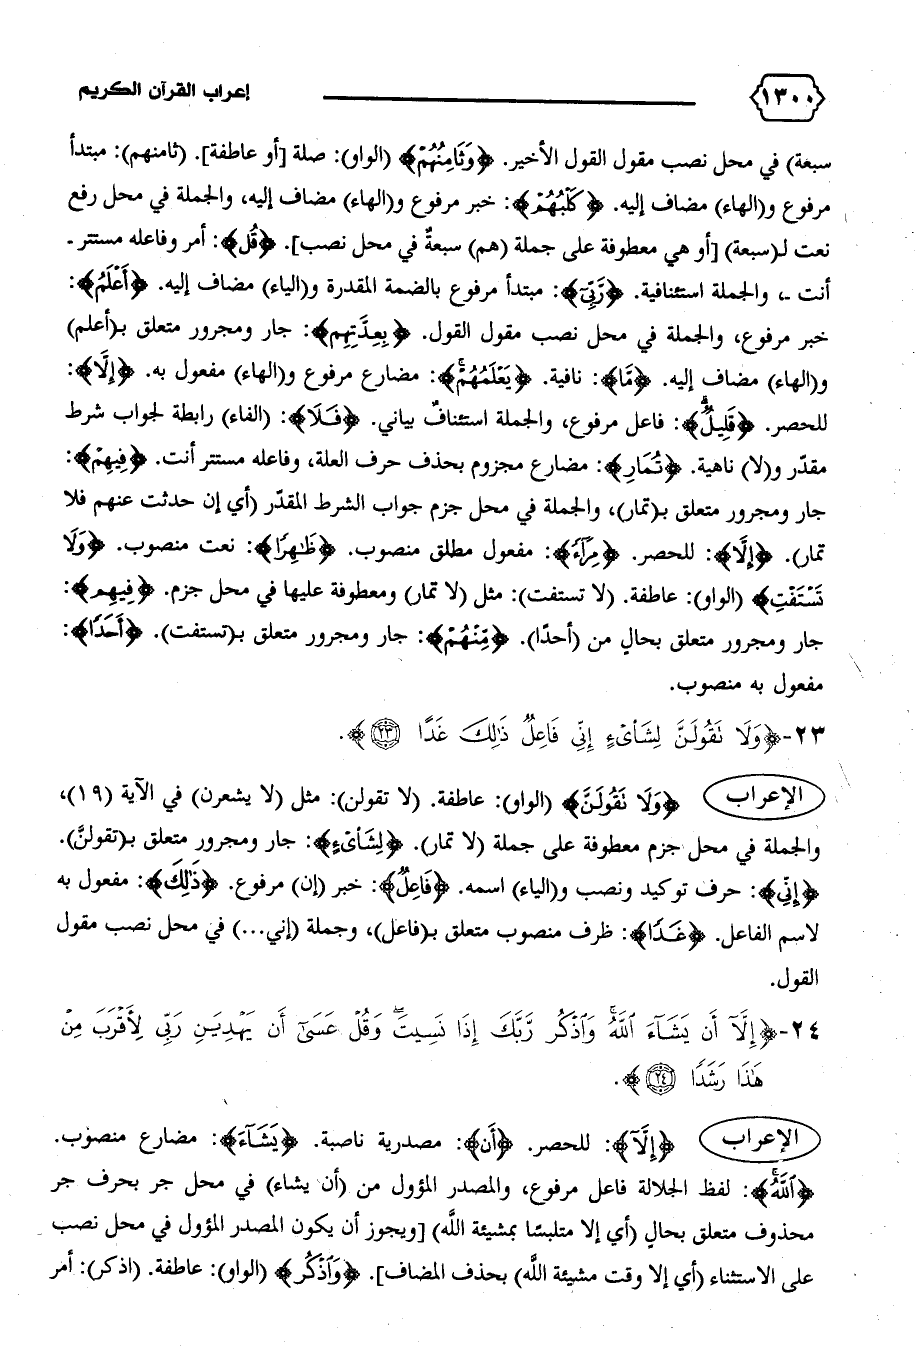 ١٣٠٠ إعراب القرآن الكريم
سبعة) في محل نصب مقول القول الأخير. ﴿وَثَامِنُهُمْ﴾ (الواو): صلة [أو عاطفة]. (ثامنهم): مبتدأ
مرفوع و(الهاء) مضاف إليه. ﴿كَلْبُهُمْ﴾: خبر مرفوع و(الهاء) مضاف إليه، والجملة في محل رفع
نعت لـ(سبعة) [أو هي معطوفة على جملة (هم) سبعةٌ في محل نصب]. ﴿قُل﴾: أمر وفاعله مستتر ـ
أنت ـ، والجملة استئنافية. ﴿رَّبِّىٓ﴾: مبتدأ مرفوع بالضمة المقدرة و(الياء) مضاف إليه. ﴿أَعْلَمُ﴾:
خبر مرفوع، والجملة في محل نصب مقول القول. ﴿بِعِدَّتِهِم﴾: جار ومجرور متعلق بـ(أعلم)
و(الهاء) مضاف إليه. ﴿مَّا﴾: نافية. ﴿يَعْلَمُهُمْ﴾: مضارع مرفوع و(الهاء) مفعول به. ﴿إِلَّا﴾:
للحصر. ﴿قَلِيلٌ﴾: فاعل مرفوع، والجملة استئنافٌ بياني. ﴿فَلَا﴾: (الفاء) رابطة لجواب شرط
مقدّر و(لا) ناهية. ﴿تُمَارِ﴾: مضارع مجزوم بحذف حرف العلة، وفاعله مستتر أنت. ﴿فِيهِمْ﴾:
جار ومجرور متعلق بـ(تمار)، والجملة في محل جزم جواب الشرط المقدّر (أي إن حدثت عنهم فلا
تمار). ﴿إِلَّا﴾: للحصر. ﴿مِرَآءً﴾: مفعول مطلق منصوب. ﴿ظَٰهِرًا﴾: نعت منصوب. ﴿وَلَا
تَسْتَفْتِ﴾ (الواو): عاطفة. (لا تستفت): مثل (لا تمار) ومعطوفة عليها في محل جزم. ﴿فِيهِم﴾:
جار ومجرور متعلق بحالٍ من (أحدًا). ﴿مِّنْهُمْ﴾: جار ومجرور متعلق بـ(تستفت). ﴿أَحَدًا﴾:
مفعول به منصوب.
٢٣-﴿وَلَا تَقُولَنَّ لِشَا۟ىْءٍ إِنِّى فَاعِلٌ ذَٰلِكَ غَدًا ٢٣﴾.
الإعراب ﴿وَلَا تَقُولَنَّ﴾ (الواو): عاطفة. (لا تقولن): مثل (لا يشعرن) في الآية (١٩)،
والجملة في محل جزم معطوفة على جملة (لا تمار). ﴿لِشَا۟ىْءٍ﴾: جار ومجرور متعلق بـ(تقولنَّ).
﴿إِنِّى﴾: حرف توكيد ونصب و(الياء) اسمه. ﴿فَاعِلٌ﴾: خبر (إن) مرفوع. ﴿ذَٰلِكَ﴾: مفعول به
لاسم الفاعل. ﴿غَدًا﴾: ظرف منصوب متعلق بـ(فاعل)، وجملة (إني...) في محل نصب مقول
القول.
٢٤-﴿إِلَّآ أَن يَشَآءَ ٱللَّهُ وَٱذْكُر رَّبَّكَ إِذَا نَسِيتَ وَقُلْ عَسَىٰٓ أَن يَهْدِيَنِ رَبِّى لِأَقْرَبَ مِنْ
هَٰذَا رَشَدًا ٢٤﴾.
الإعراب ﴿إِلَّآ﴾: للحصر. ﴿أَن﴾: مصدرية ناصبة. ﴿يَشَآءَ﴾: مضارع منصوب.
﴿ٱللَّهُ﴾: لفظ الجلالة فاعل مرفوع، والمصدر المؤول من (أن يشاء) في محل جر بحرف جر
محذوف متعلق بحالٍ (أي إلا متلبسًا بمشيئة اللَّه) [ويجوز أن يكون المصدر المؤول في محل نصب
على الاستثناء (أي إلا وقت مشيئة اللَّه) بحذف المضاف]. ﴿وَٱذْكُر﴾ (الواو): عاطفة. (اذكر): أمر